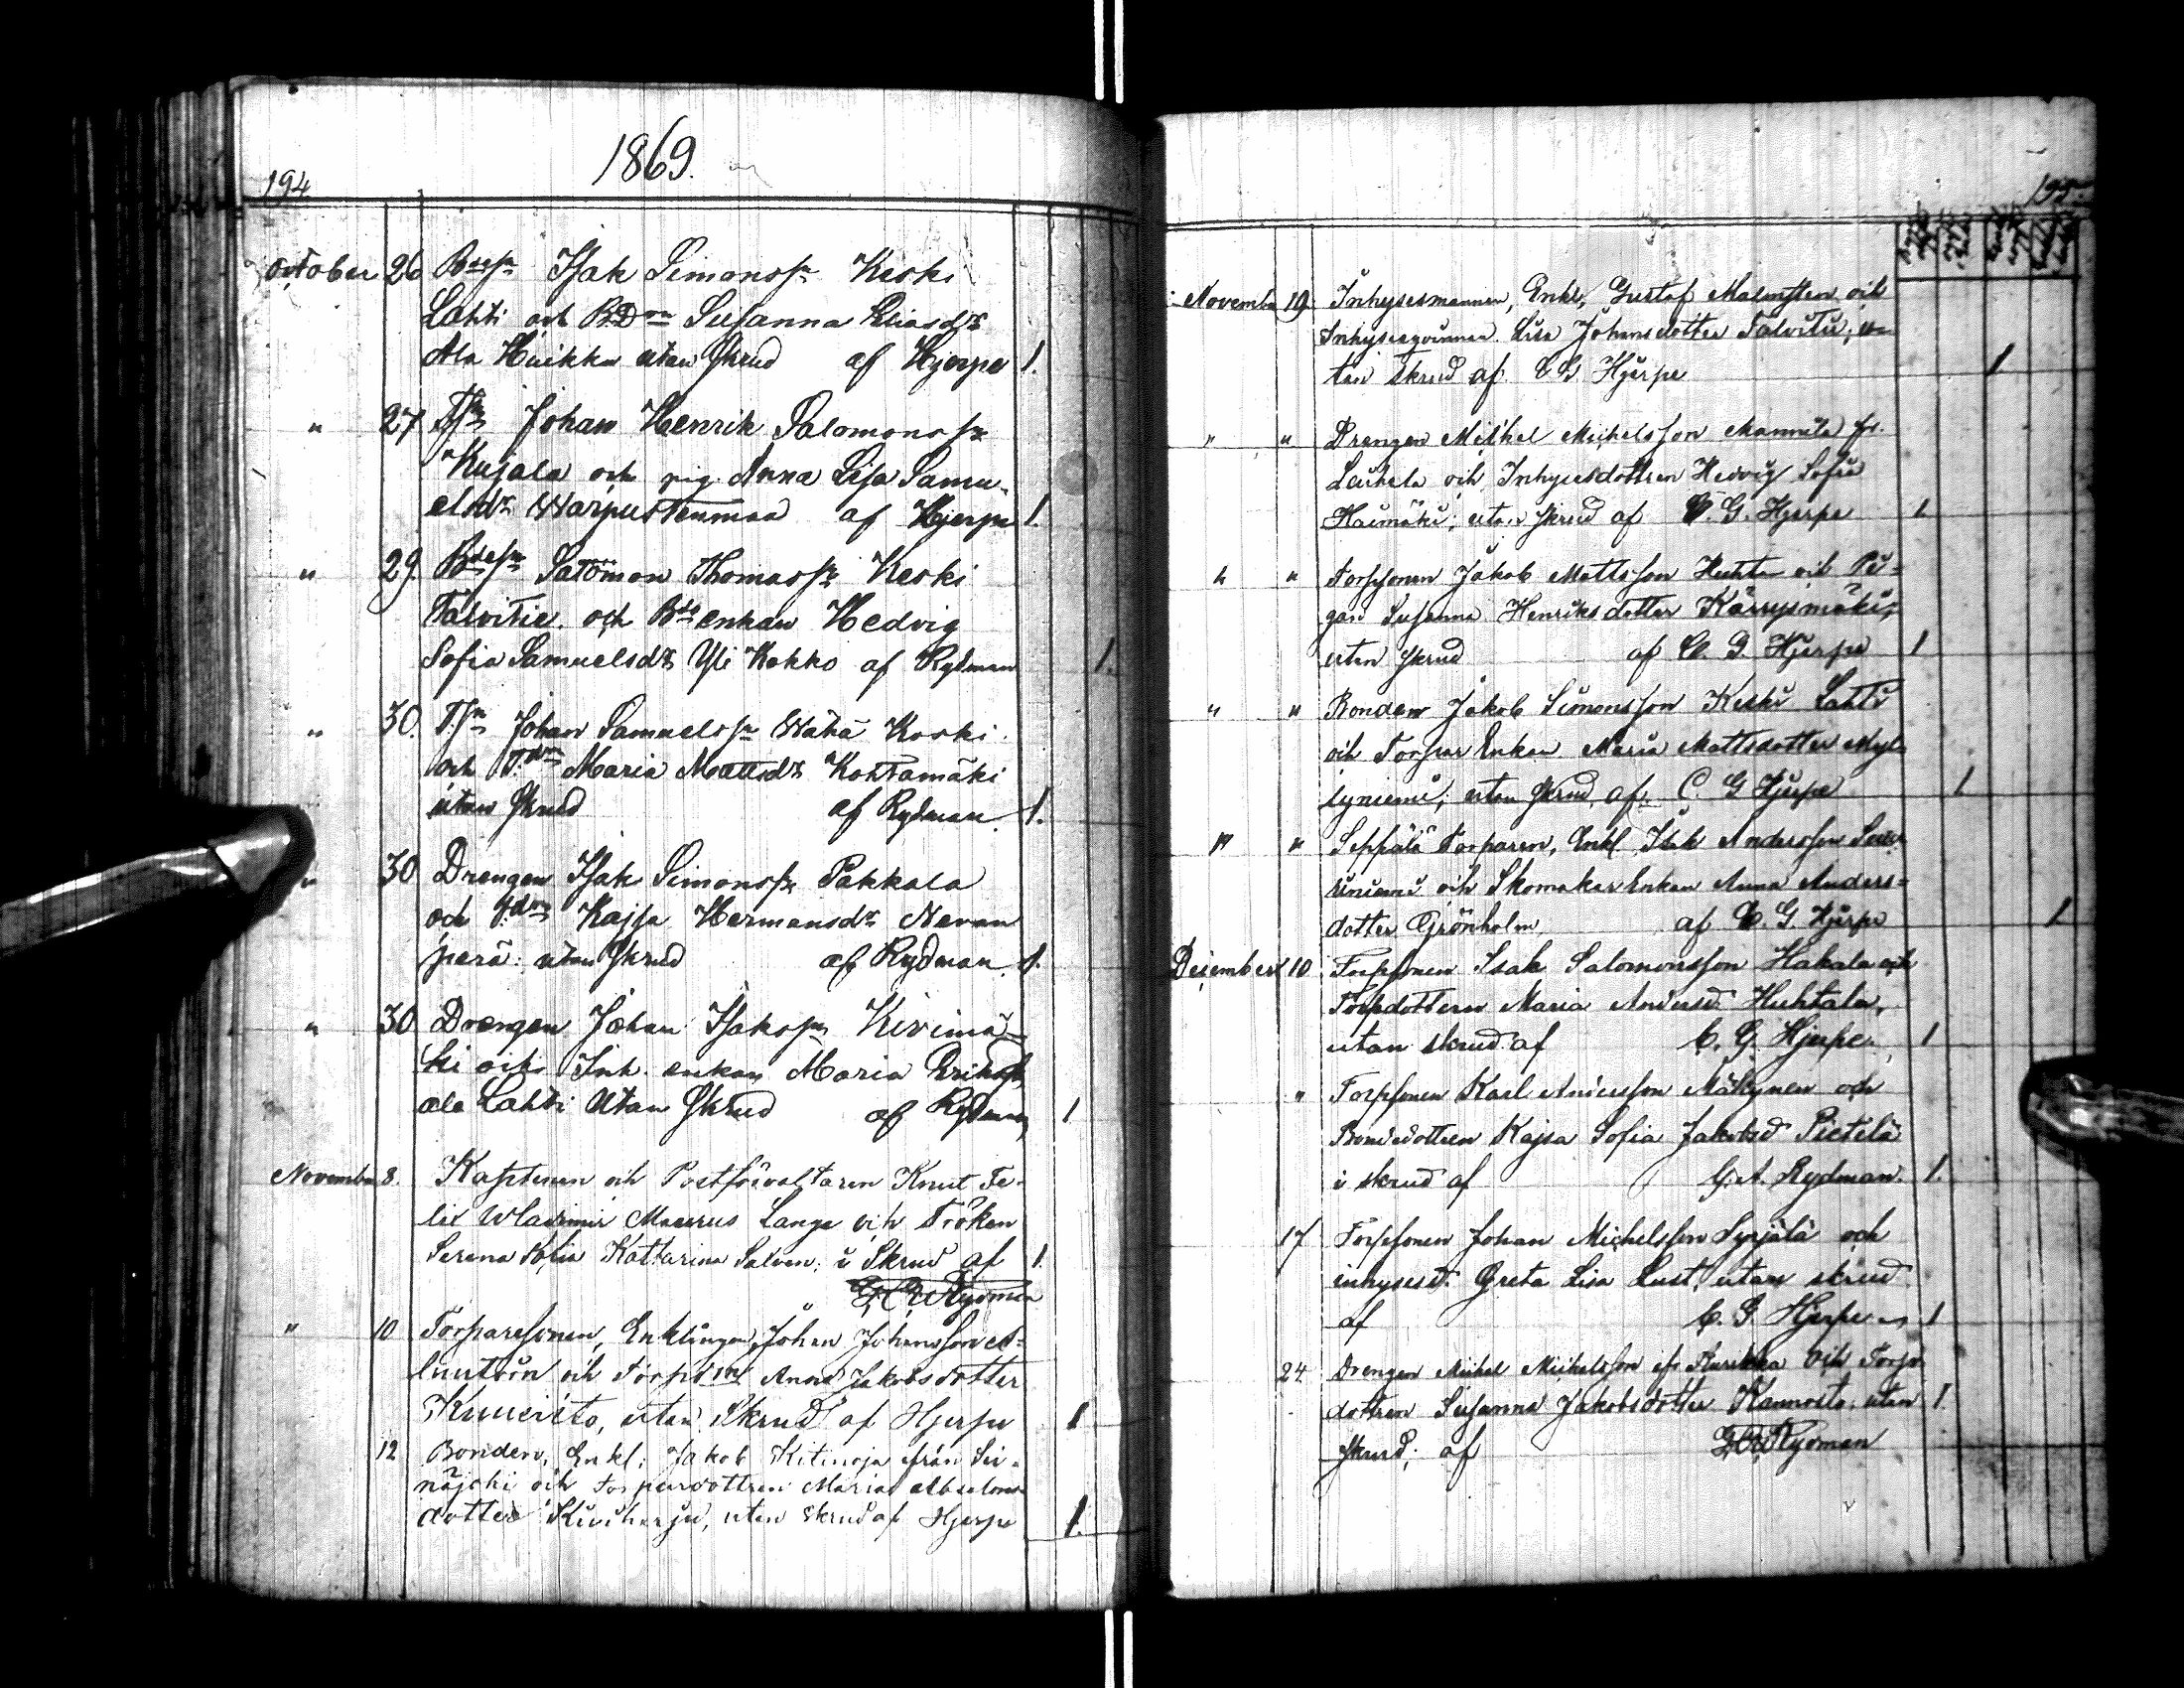 1869.
194
October 26 Bdesn Isak Simonssn Keski
Lahti och B.Dn Susanna Eliasdr
Ala Huikku utan Skrud af Hjerpe 1.
" 27 Tsn Johan Henrik Salomonssn
Kujala och pig. Anna Lisa Samu-
elsdr Warpustenmaa af Hjerpe 1.
" 29. Bdesn Salomon Thomassn Keski
Talvitie och Bdeenkan Hedvig
Sofia Samuelsdr Yli Kokko af Rydman 1.
" 30. T.sn Johan Samuelssn Wähä Koski
och T.drn Maria Mattsdr Kohtamäki
utan Skrud af Rydman 1.
" 30 Drengen Isak Simonssn Pakkala
och T.drn Kajsa Hermansdr Nevan
perä utan Skrud af Rydman 1.
" 30 Drengen Johan Isakssn Kivimä-
ki och Inh. enkan Maria Eriksdr
ala Lahti utan Skrud af Rydman 1
November 8. Kaptenen och Postförvaltaren Knut Fe-
lix Wladimir Lange och Fröken
Serena Sofia Kattarina Salven; i Skrud af 1.
Rydman
" 10 Torparesonen, Enklingen Johan Johansson
och Anna Jakobsdotter
utan Skrud af Hjerpe 1
12 Bonden, Enkl; Jakob Kitinoja från Sei-
näjoki och Torparedottren Maria Absaloms
dotter utan skrud af Hjerpe 1.
195.
November 19. Inhysesmannen, Enkl, Gustaf Malmsten och
Inhysesqvinnan Lisa Johansdotter Talvitie, u-
tan skrud af Hjerpe 1
" " Drengen Michel Michelsson Mannila fr.
och Inhysesdottren Hedvig Sofia
utan skrud af C. G. Hjerpe 1
" " Torpsonen Jakob Mattsson Huhta och Pi-
gan Susanna Henriksdotter
utan skrud af C. G. Hjerpe 1
" " Bonden Jakob Simonsson Keski Lahti
och Torpar Enkan Maria Mattsdotter Myl-
lyniemi; utan skrud, af C. G Hjerpe 1
" " Seppälä Torparen, Enkl Isak Andersson
och Skomakar Enkan Anna Anders-
dotter Grönholm af C. G. Hjerpe 1
December 10 Torpsonen Isak Salomonsson Hakala och
Torpdottern Maria Andersd. Huhtala,
utan skrud af C. G. Hjerpe 1
" Torpsonen Karl Andersson Mäkynen och
Bondedottren Kajsa Sofia Jakobsd Pietilä
i skrud af G. A. Rydman. 1.
17 Torpsonen Johan Michelsson Syrjälä och
inhysesd. Greta Lisa Lust, utan skrud
af C. G. Hjerpe 1
24 Drengen Michel Michelsson fr. Kurikka och Torp
dottren Susanna Jakobsdotter Kannosto, utan 1.
skrud; af Rydman